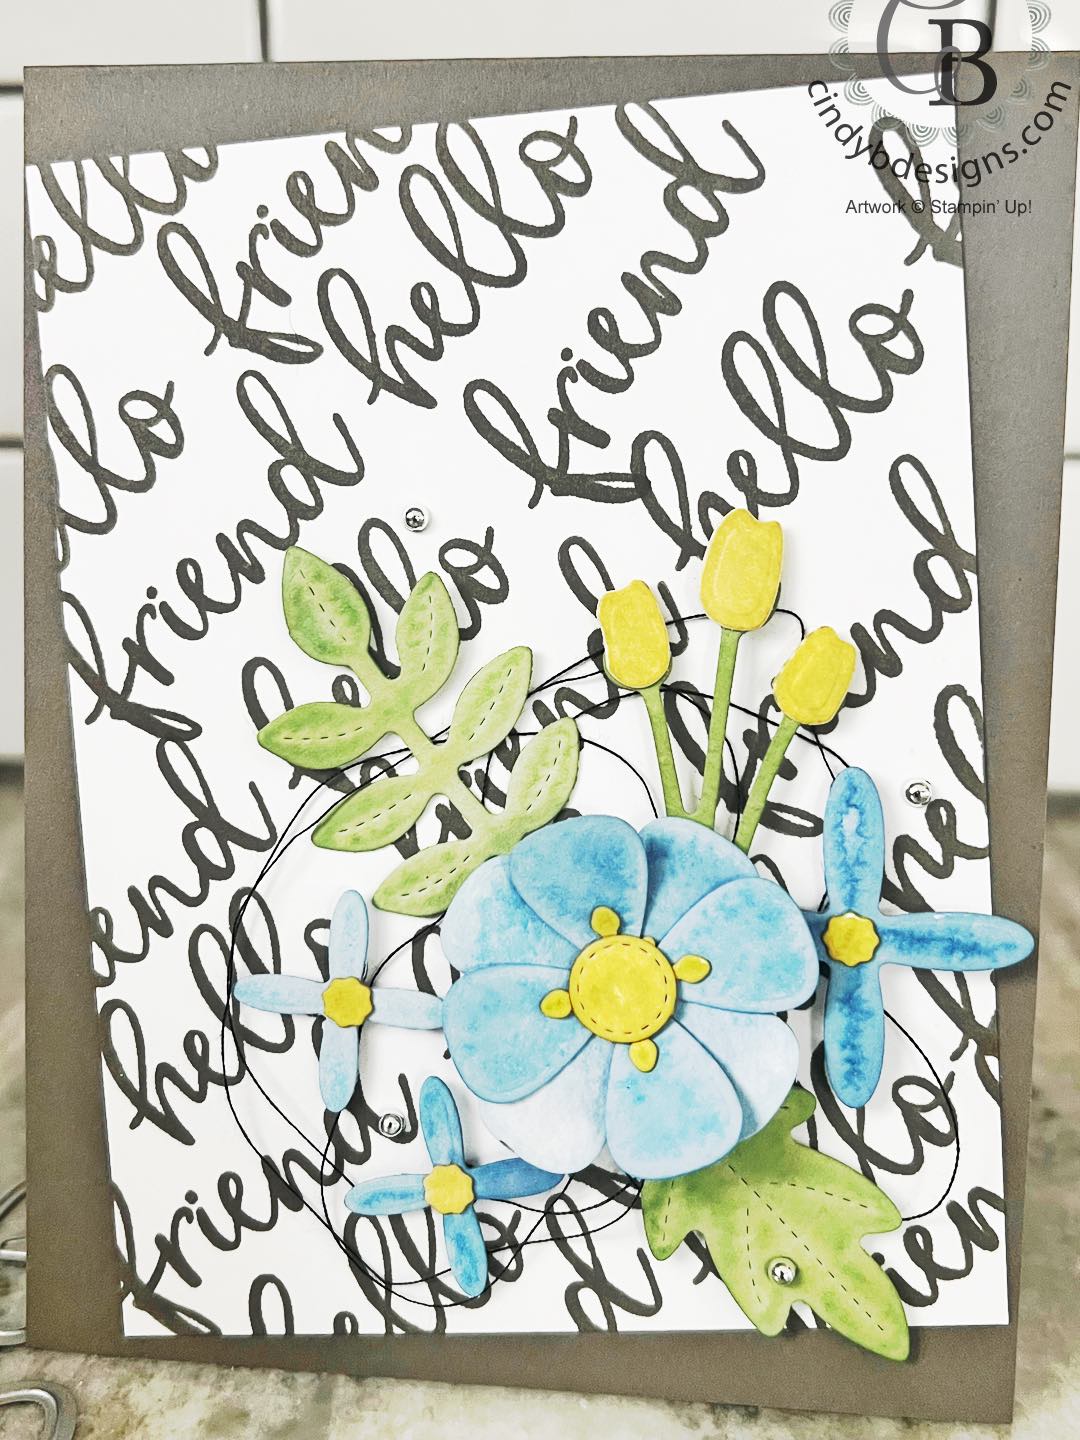 CB
cindybdesigns.com
Artwork © Stampin' Up!
ello friend hello friend
hello friend hello f
llo friend hello friend
friend hello friend hel
end hello
hello
friend hello
hello friend